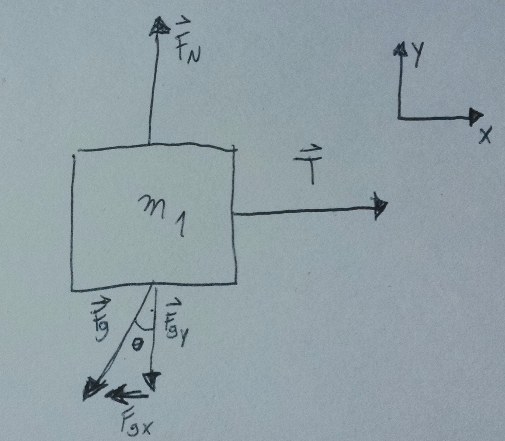 F⃗N
Y
X
T⃗
m1
F⃗g
θ
F⃗gy
Fgx